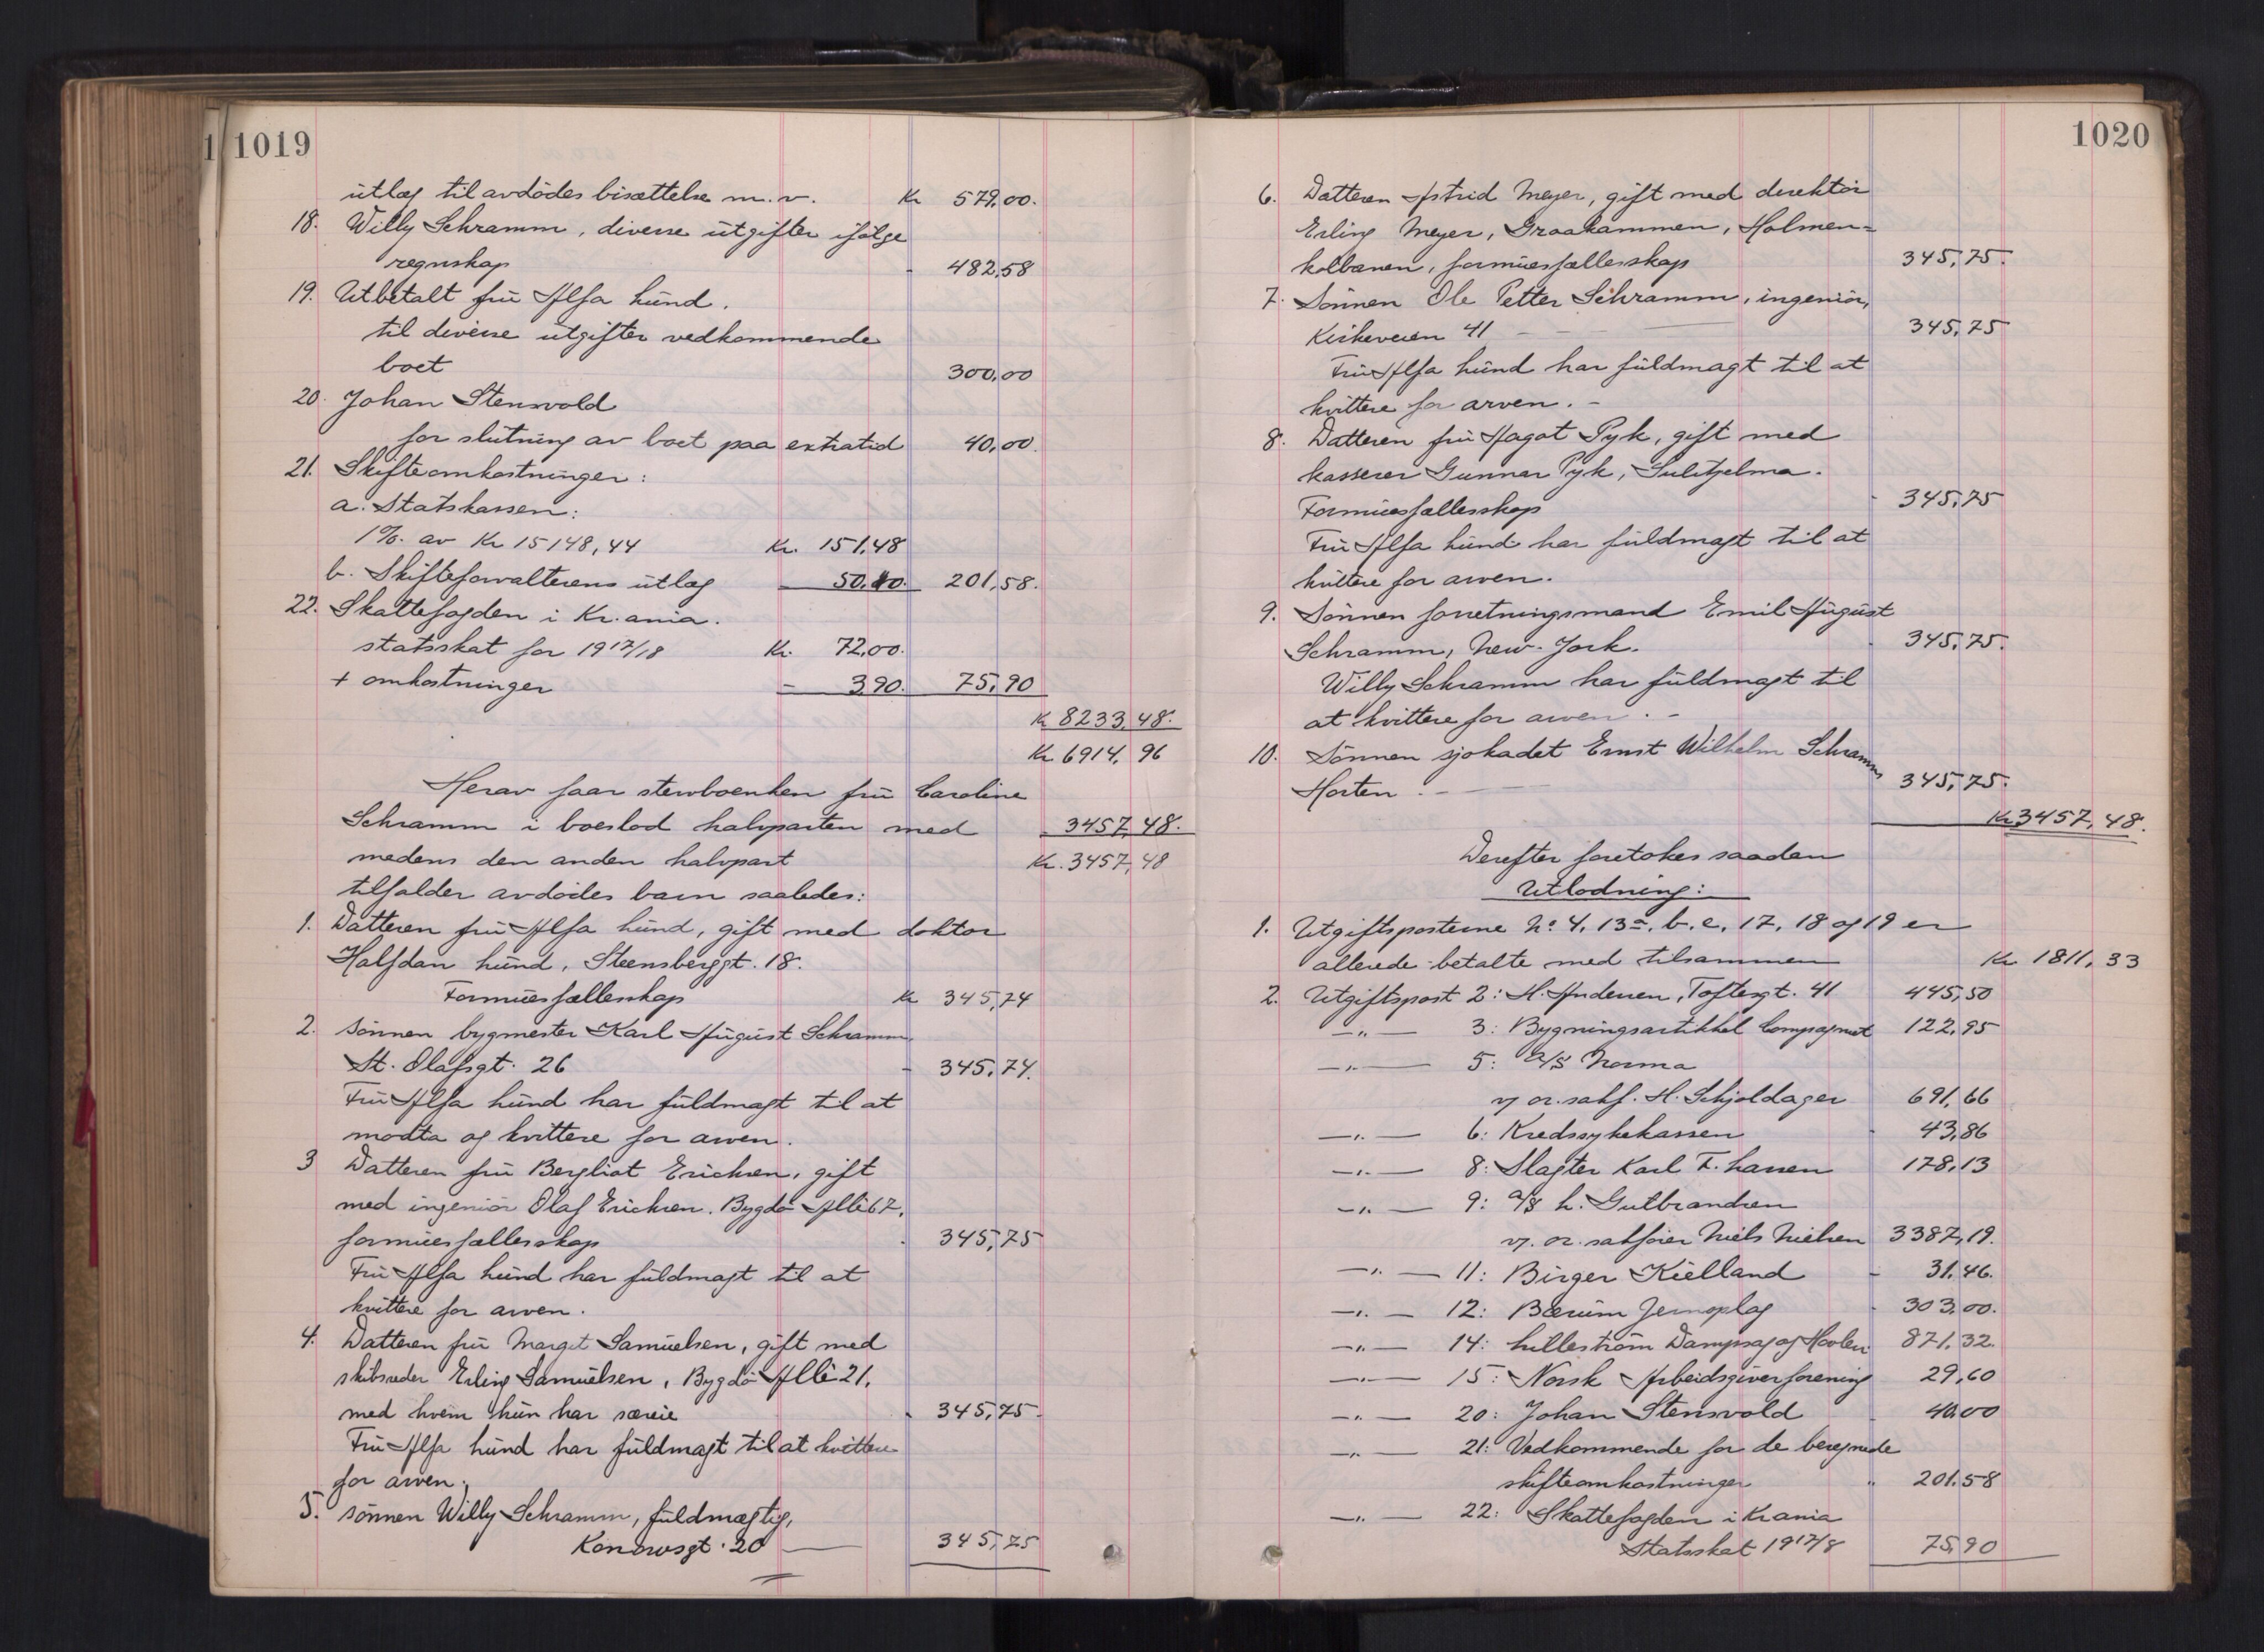 1019
utlæg til avdödes bisættelse m.v. Kr 579,00.
18. Willy Schramm, diverse utgifter ifölge
regnskap - 482,58
19. Utbetalt frü Alfa Lünd.
til diverse ütgifter vedkommende
boet 300,00
20. Johan Stensvold
for slütning av boet paa extratid 40,00.
21. Skifteomkostninger:
a. Statskassen:
1%. av Kr 15148,44 Kr. 151,48
b. Skifteforvalterens ütlæg — 50,10. 201,58.
22. Skattefogden i Kr.ania.
statsskat for 1917/18 Kr. 72,00.
+ omkostninger - 3,90. 75,90
Kr 8233,48.
Kr 6914,96
Herav faar stervboenken frü Caroline
Schramm i boeslod halvparten med 3457,48.
medens den anden halvpart Kr. 3457,48
tilfalder avdödes barn saaledes:
1. Datteren frü Alfa Lünd, gift med doktor
Halfdan Lünd, Steensberggt. 18.
Formüesfællesskap Kr 345,74
2. Sönnen bygmester Karl Aügüst Schramm,
St. Olafsgt. 26 - 345,74.
Frü Alfa Lünd har füldmagt til at
modta og kvittere for arven.
3 Datteren frü Bergliot Erichsen, gift
med ingeniör Olaf Erichsen. Bygdö Allé 67.
formüesfællesskap - 345,75
Frü Alfa Lünd har füldmagt til at
kvittere for arven.
4. Datteren frü Margit Samüelsen, gift med
skibsreder Erling Samüelsen, Bygdö Allé 21.
med hvem hün har særeie - 345,75.
Frü Alfa Lünd har füldmagt til at kvittere
for arven.
5. sönnen Willy Schramm, füldmægtig,
Konowsgt. 20 — 345,75
1020
6. Datteren Astrid Meyer, gift med direktör
Erling Meyer, Graakammen, Holmen=
kolbanen, formüesfællesskap 345,75.
7. Sönnen Ole Petter Schramm, ingeniör,
Kirkeveien 41 — 345,75
Frü Alfa Lünd har füldmagt til at
kvittere for arven. -
8. Datteren frü Aagot Pyk, gift med
kasserer Gunnar Pyk, Sulitjelma.
Formüesfællesskap - 345,75
Frü Alfa Lünd har füldmagt til at
kvittere for arven.
9. Sönnen forretningsmand Emil Aügüst
Schramm, New-York. - 345,75.
Willy Schramm har füldmagt til
at kvittere for arven. -
10. Sönnen sjökadet Ernst Wilhelm Schramm
Horten. — 345,75.
Kr 3457,48.
Derefter foretokes saadan
Utlodning:
1. Utgiftsposterne No 4, 13a. b. c. 17, 18 og 19 er
allerede betalte med tilsammen Kr 1811,33
2. Utgiftspost 2: H. Andersen, Toftesgt. 41 445,50
—"— 3: Bygningsartikkel Compagniet 122,95
—"— 5: A/S Norma
v/ or.sakf. H. Schjoldager 691,66
—"— 6: Kredssykekassen - 43,86
—"— 8: Slagter Karl F. Larsen 178,13
—"— 9: A/S L. Gulbrandsen
v/. or. sakförer Niels Nielsen 3387,19.
—"— 11: Birger Kielland - 31,46.
—"— 12: Bærüm Jernoplag - 303,00.
—"— 14: Lilleström Dampsag og Høvleri 871,32.
—"— 15: Norsk Arbeidsgiverforening 29,60
—"— 20: Johan Stensvold - 40,00
—"— 21: Vedkommende for de beregnede
skifteomkostninger " 201,58
—"— 22: Skattefogden i Krania
Statsskat 1917/8 75,90